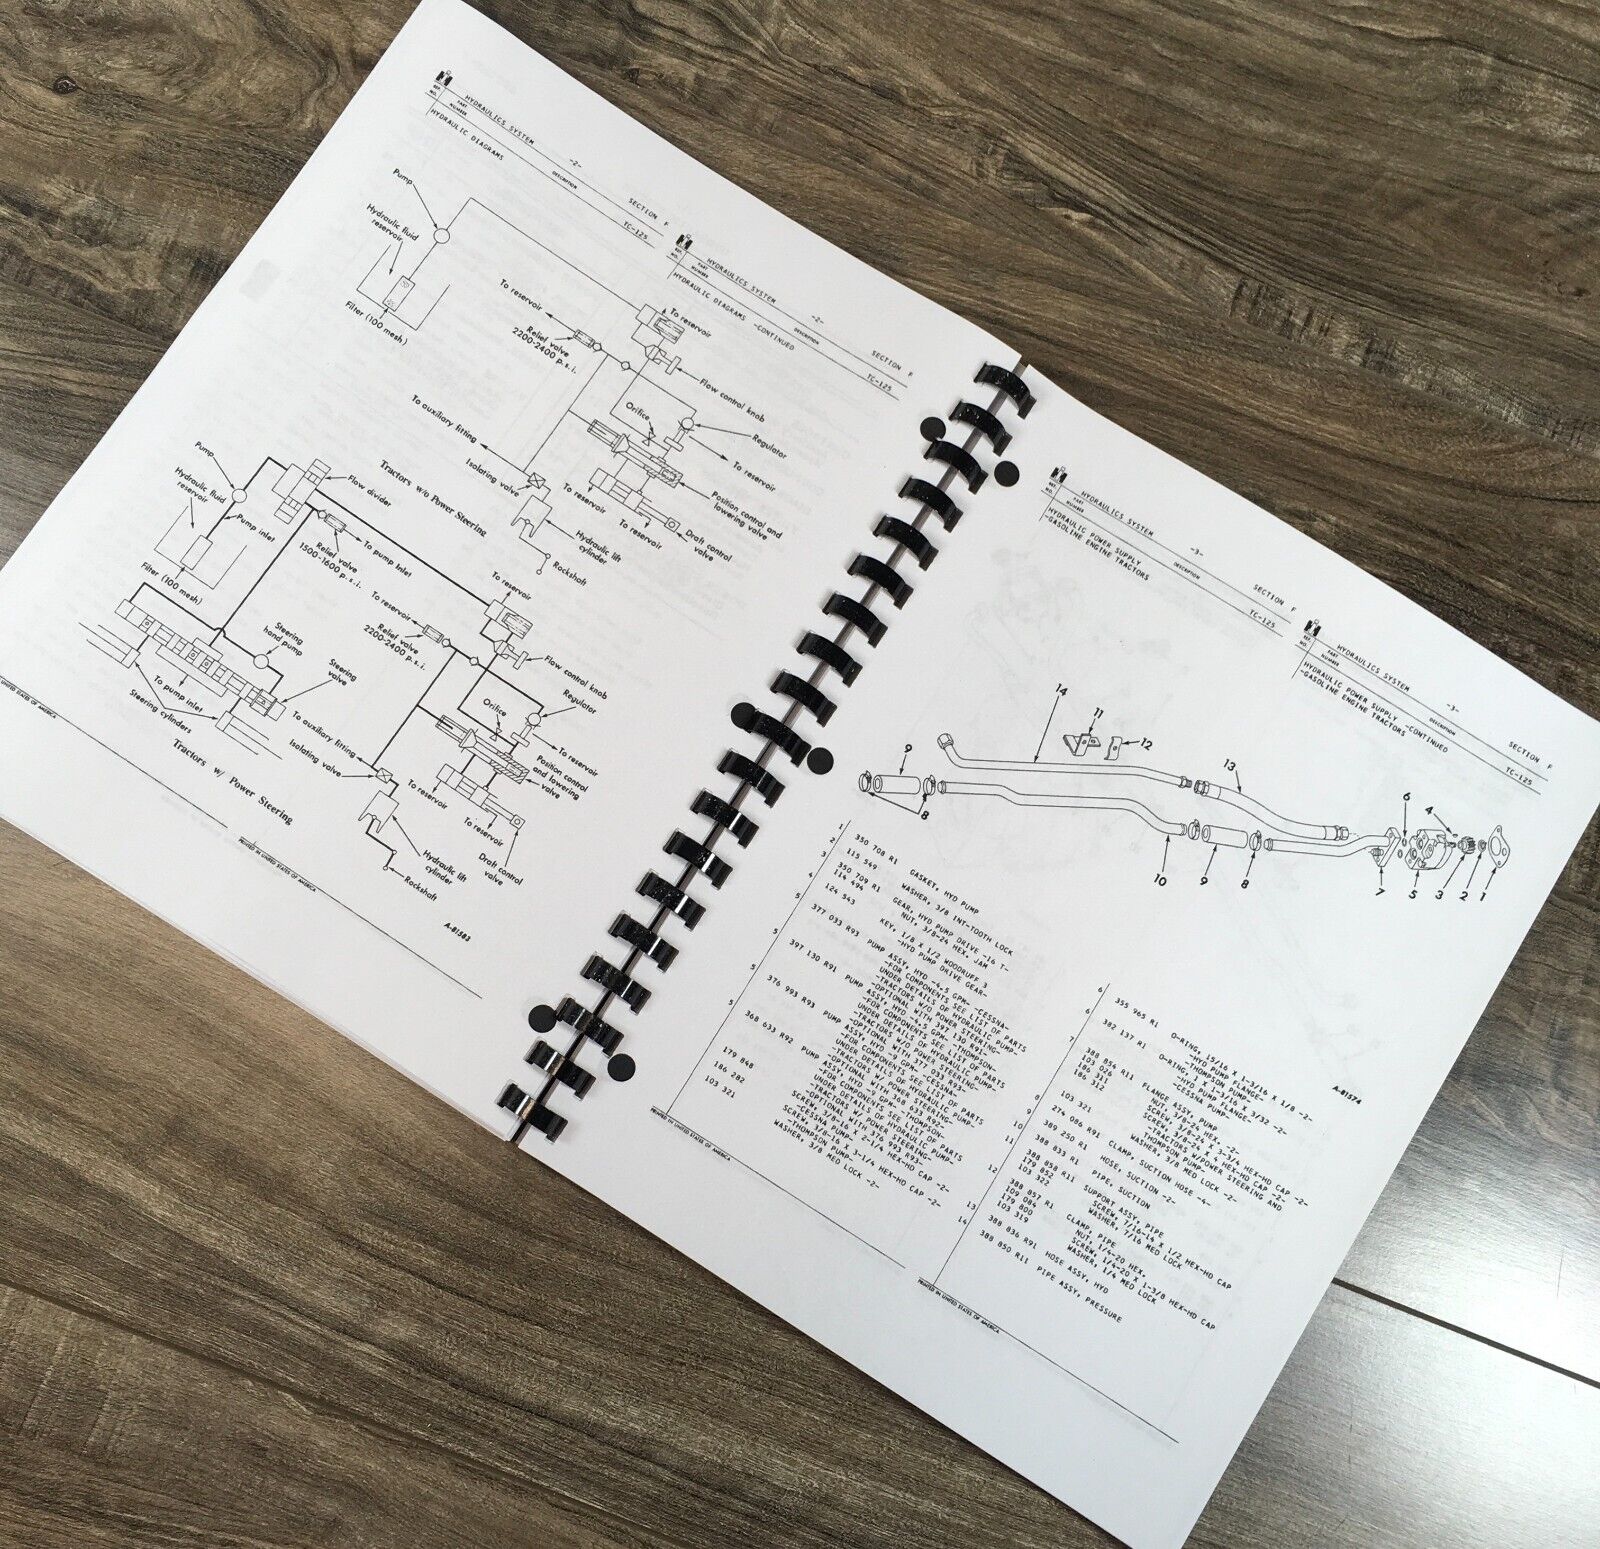 IH
HYDRAULICS SYSTEM -2- SECTION F
REF. NO. PART NUMBER DESCRIPTION TC-125
HYDRAULIC DIAGRAMS
Pump
Hydraulic fluid
reservoir
Filter (100 mesh)
To reservoir
To reservoir
Relief valve
2200-2400 p.s.i.
Flow control knob
Orifice
Regulator
To auxiliary fitting
To reservoir
Isolating valve
To reservoir
To reservoir
Position control and
lowering valve
Draft control
valve
Hydraulic lift
cylinder
Rockshaft
Tractors w/o Power Steering
Pump
Hydraulic fluid
reservoir
Flow divider
Pump inlet
Relief valve
1500-1600 p.s.i.
To pump inlet
Filter (100 mesh)
To reservoir
To reservoir
Relief valve
2200-2400 p.s.i.
Steering
hand pump
Flow control knob
Steering
valve
Regulator
Orifice
To pump inlet
Steering cylinders
To auxiliary fitting
Isolating valve
To reservoir
Position control
and lowering
valve
To reservoir
To reservoir
Draft control
valve
Hydraulic lift
cylinder
Rockshaft
Tractors w/ Power Steering
A-81583
UNITED STATES OF AMERICA
PRINTED IN UNITED STATES OF AMERICA
IH
HYDRAULICS SYSTEM -2- SECTION F
REF. NO. PART NUMBER DESCRIPTION TC-125
HYDRAULIC DIAGRAMS -CONTINUED
IH
HYDRAULICS SYSTEM -3- SECTION F
REF. NO. PART NUMBER DESCRIPTION TC-125
HYDRAULIC POWER SUPPLY
-GASOLINE ENGINE TRACTORS
14
11
12
9
8
13
10
9
8
6
4
7
5
3
2
1
1 350 708 R1 GASKET, HYD PUMP
2 115 549 WASHER, 3/8 INT-TOOTH LOCK
3 350 709 R1 GEAR, HYD PUMP DRIVE -16 T-
114 494 NUT, 3/8-24 HEX. JAM
4 124 543 KEY, 1/8 X 1/2 WOODRUFF 3
-HYD PUMP DRIVE GEAR-
5 377 033 R93 PUMP ASSY, HYD -4.5 GPM- -CESSNA-
-FOR COMPONENTS SEE LIST OF PARTS
UNDER DETAILS OF HYDRAULIC PUMP-
-TRACTORS W/O POWER STEERING-
-OPTIONAL WITH 397 130 R91-
5 397 130 R91 PUMP ASSY, HYD -4.5 GPM- -THOMPSON-
-FOR COMPONENTS SEE LIST OF PARTS
UNDER DETAILS OF HYDRAULIC PUMP-
-TRACTORS W/O POWER STEERING-
-OPTIONAL WITH 377 033 R93-
5 376 993 R93 PUMP ASSY, HYD -9 GPM- -CESSNA-
-FOR COMPONENTS SEE LIST OF PARTS
UNDER DETAILS OF HYDRAULIC PUMP-
-TRACTORS W/POWER STEERING-
-OPTIONAL WITH 368 633 R92-
5 368 633 R92 PUMP ASSY, HYD -9 GPM- -THOMPSON-
-FOR COMPONENTS SEE LIST OF PARTS
UNDER DETAILS OF HYDRAULIC PUMP-
-TRACTORS W/POWER STEERING-
-OPTIONAL WITH 376 993 R93-
179 848 SCREW, 3/8-16 X 2-1/4 HEX-HD CAP -2-
-CESSNA PUMP-
186 282 SCREW, 3/8-16 X 3-1/4 HEX-HD CAP -2-
-THOMPSON PUMP-
103 321 WASHER, 3/8 MED LOCK -2-
PRINTED IN UNITED STATES OF AMERICA
IH
HYDRAULICS SYSTEM -3- SECTION F
REF. NO. PART NUMBER DESCRIPTION TC-125
HYDRAULIC POWER SUPPLY -CONTINUED
-GASOLINE ENGINE TRACTORS
A-81574
6 355 965 R1 O-RING, 15/16 X 1-3/16 X 1/8 -2-
-HYD PUMP FLANGE-
-THOMPSON PUMP-
6 382 137 R1 O-RING, 1 X 1-3/16 X 3/32 -2-
-HYD PUMP FLANGE-
-CESSNA PUMP-
7 388 854 R11 FLANGE ASSY, PUMP
103 026 NUT, 3/8-24 HEX. -2-
186 311 SCREW, 3/8-24 X 3-3/4 HEX-HD CAP -2-
186 312 SCREW, 3/8-24 X 4 HEX-HD CAP -2-
-TRACTORS W/POWER STEERING AND
THOMPSON PUMP-
103 321 WASHER, 3/8 MED LOCK -2-
8 274 086 R91 CLAMP, SUCTION HOSE -4-
9 389 250 R1 HOSE, SUCTION -2-
10 388 833 R1 PIPE, SUCTION
11 388 858 R11 SUPPORT ASSY, PIPE
179 852 SCREW, 7/16-14 X 1/2 HEX-HD CAP
103 322 WASHER, 7/16 MED LOCK
12 388 857 R1 CLAMP, PIPE
109 084 NUT, 1/4-20 HEX.
179 800 SCREW, 1/4-20 X 1-3/8 HEX-HD CAP
103 319 WASHER, 1/4 MED LOCK
13 388 836 R91 HOSE ASSY, HYD
14 388 850 R11 PIPE ASSY, PRESSURE
PRINTED IN UNITED STATES OF AMERICA